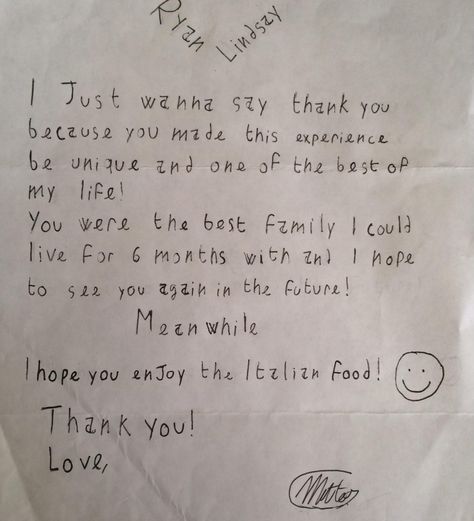 Ryan
Lindsay
I Just wanna say thank you
because you made this experience
be unique and one of the best of
my life!
You were the best family I could
live for 6 months with and I hope
to see you again in the future!
Meanwhile
I hope you enjoy the Italian food!
Thank you!
Love,